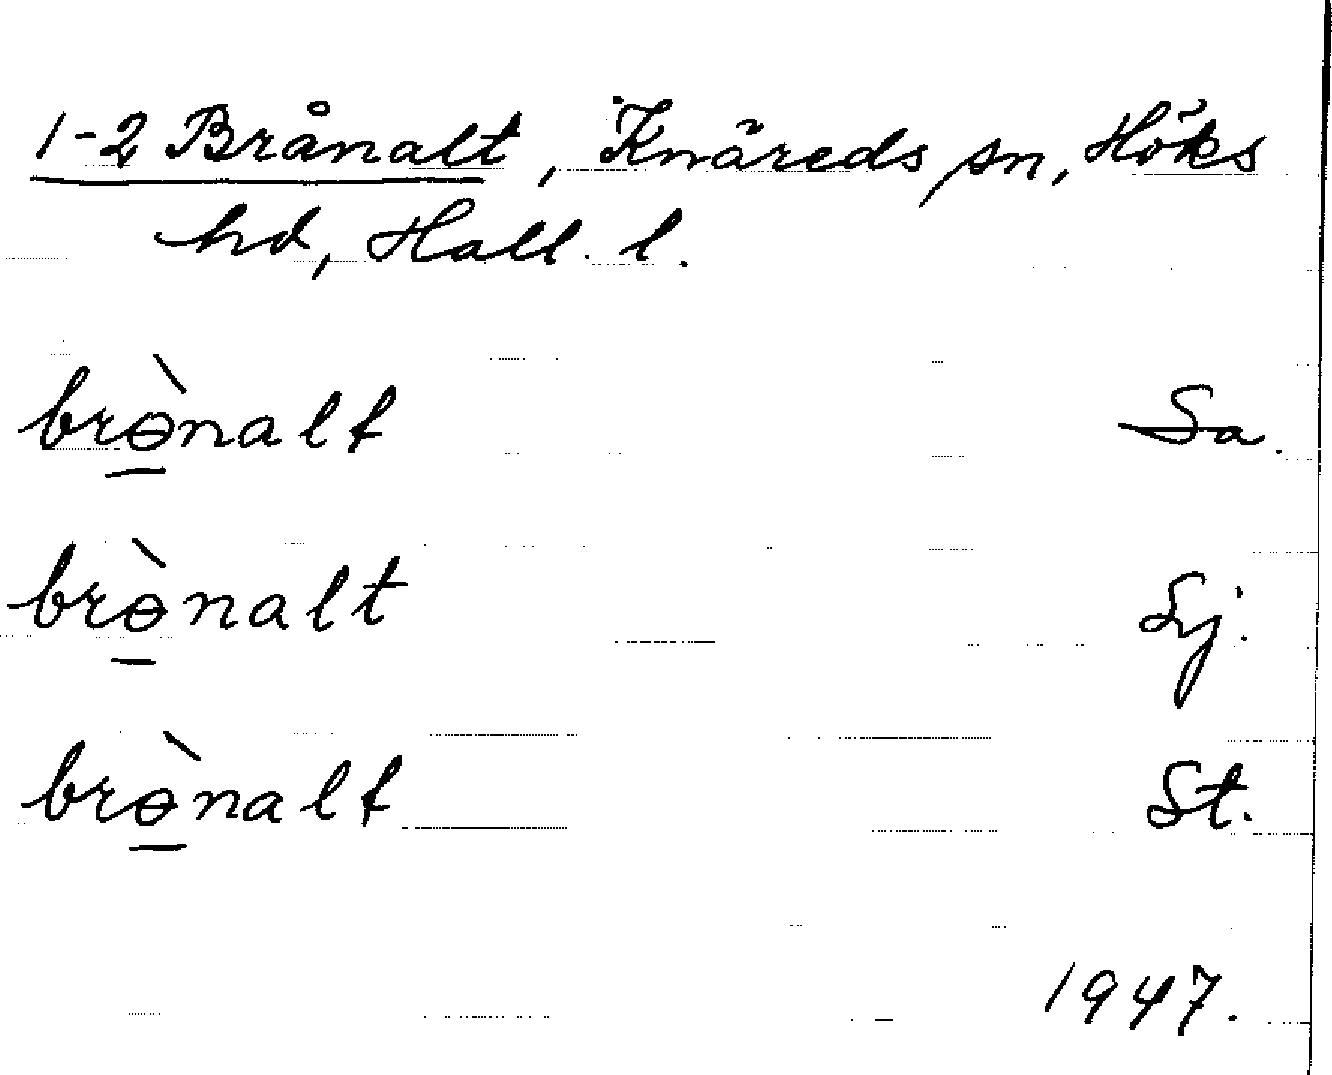 1-2 Brånalt, Knäreds sn, Höks
hd, Hall. l.
brɵ̠̀nalt Sa.
brɵ̠̀nalt Sj.
brɵ̠̀nalt St.
1947.